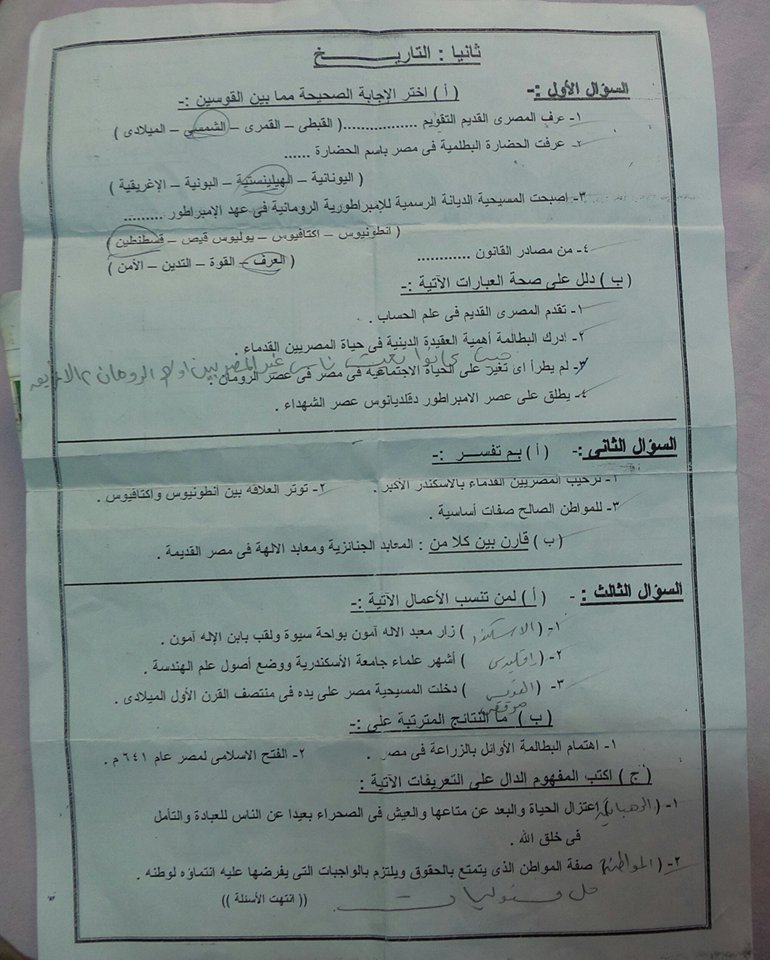 ثانيا : التاريـــــــخ
السؤال الأول :- ( أ ) اختر الإجابة الصحيحة مما بين القوسين :-
١- عرف المصرى القديم التقويم ................( القبطى – القمرى – الشمسي – الميلادى )
٢- عرفت الحضارة البطلمية فى مصر باسم الحضارة ......
( اليونانية – الهيلينستية – البونية – الإغريقية )
٣- اصبحت المسيحية الديانة الرسمية للإمبراطورية الرومانية فى عهد الإمبراطور .........
( انطونيوس – اكتافيوس – يوليوس قيص – قسطنطين )
٤- من مصادر القانون ............
( العرف – القوة – التدين – الأمن )
( ب ) دلل على صحة العبارات الآتية :-
١- تقدم المصرى القديم فى علم الحساب .
٢- إدرك البطالمة أهمية العقيدة الدينية فى حياة المصريين القدماء .
٣- لم يطرأ اى تغير على الحياة الاجتماعية فى مصر فى عصر الرومان .
٤- يطلق على عصر الامبراطور دقلديانوس عصر الشهداء .
السؤال الثانى :- ( أ ) بم تفسـر :-
١- ترحيب المصريين القدماء بالاسكندر الأكبر . ٢- توتر العلاقه بين أنطونيوس واكتافيوس .
٣- للمواطن الصالح صفات أساسية .
( ب ) قارن بين كلا من : المعابد الجنائزية ومعابد الالهة فى مصر القديمة .
السؤال الثالث : - ( أ ) لمن تنسب الأعمال الآتية :-
١- ( الاسكندر ) زار معبد الاله آمون بواحة سيوة ولقب بابن الإله آمون .
٢- ( اقليدس ) أشهر علماء جامعة الأسكندرية ووضع أصول علم الهندسة .
٣- ( القديس مرقص ) دخلت المسيحية مصر على يده فى منتصف القرن الأول الميلادى .
( ب ) ما النتائج المترتبة على :-
١- اهتمام البطالمة الأوائل بالزراعة فى مصر . ٢- الفتح الاسلامى لمصر عام ٦٤١ م .
( ج ) اكتب المفهوم الدال على التعريفات الآتية :
١- ( الرهبانية ) إعتزال الحياة والبعد عن متاعها والعيش فى الصحراء بعيدا عن الناس للعبادة والتأمل
فى خلق الله .
٢- ( المواطنة ) صفة المواطن الذى يتمتع بالحقوق ويلتزم بالواجبات التى يفرضها عليه انتماؤه لوطنه .
(( انتهت الأسئلة ))